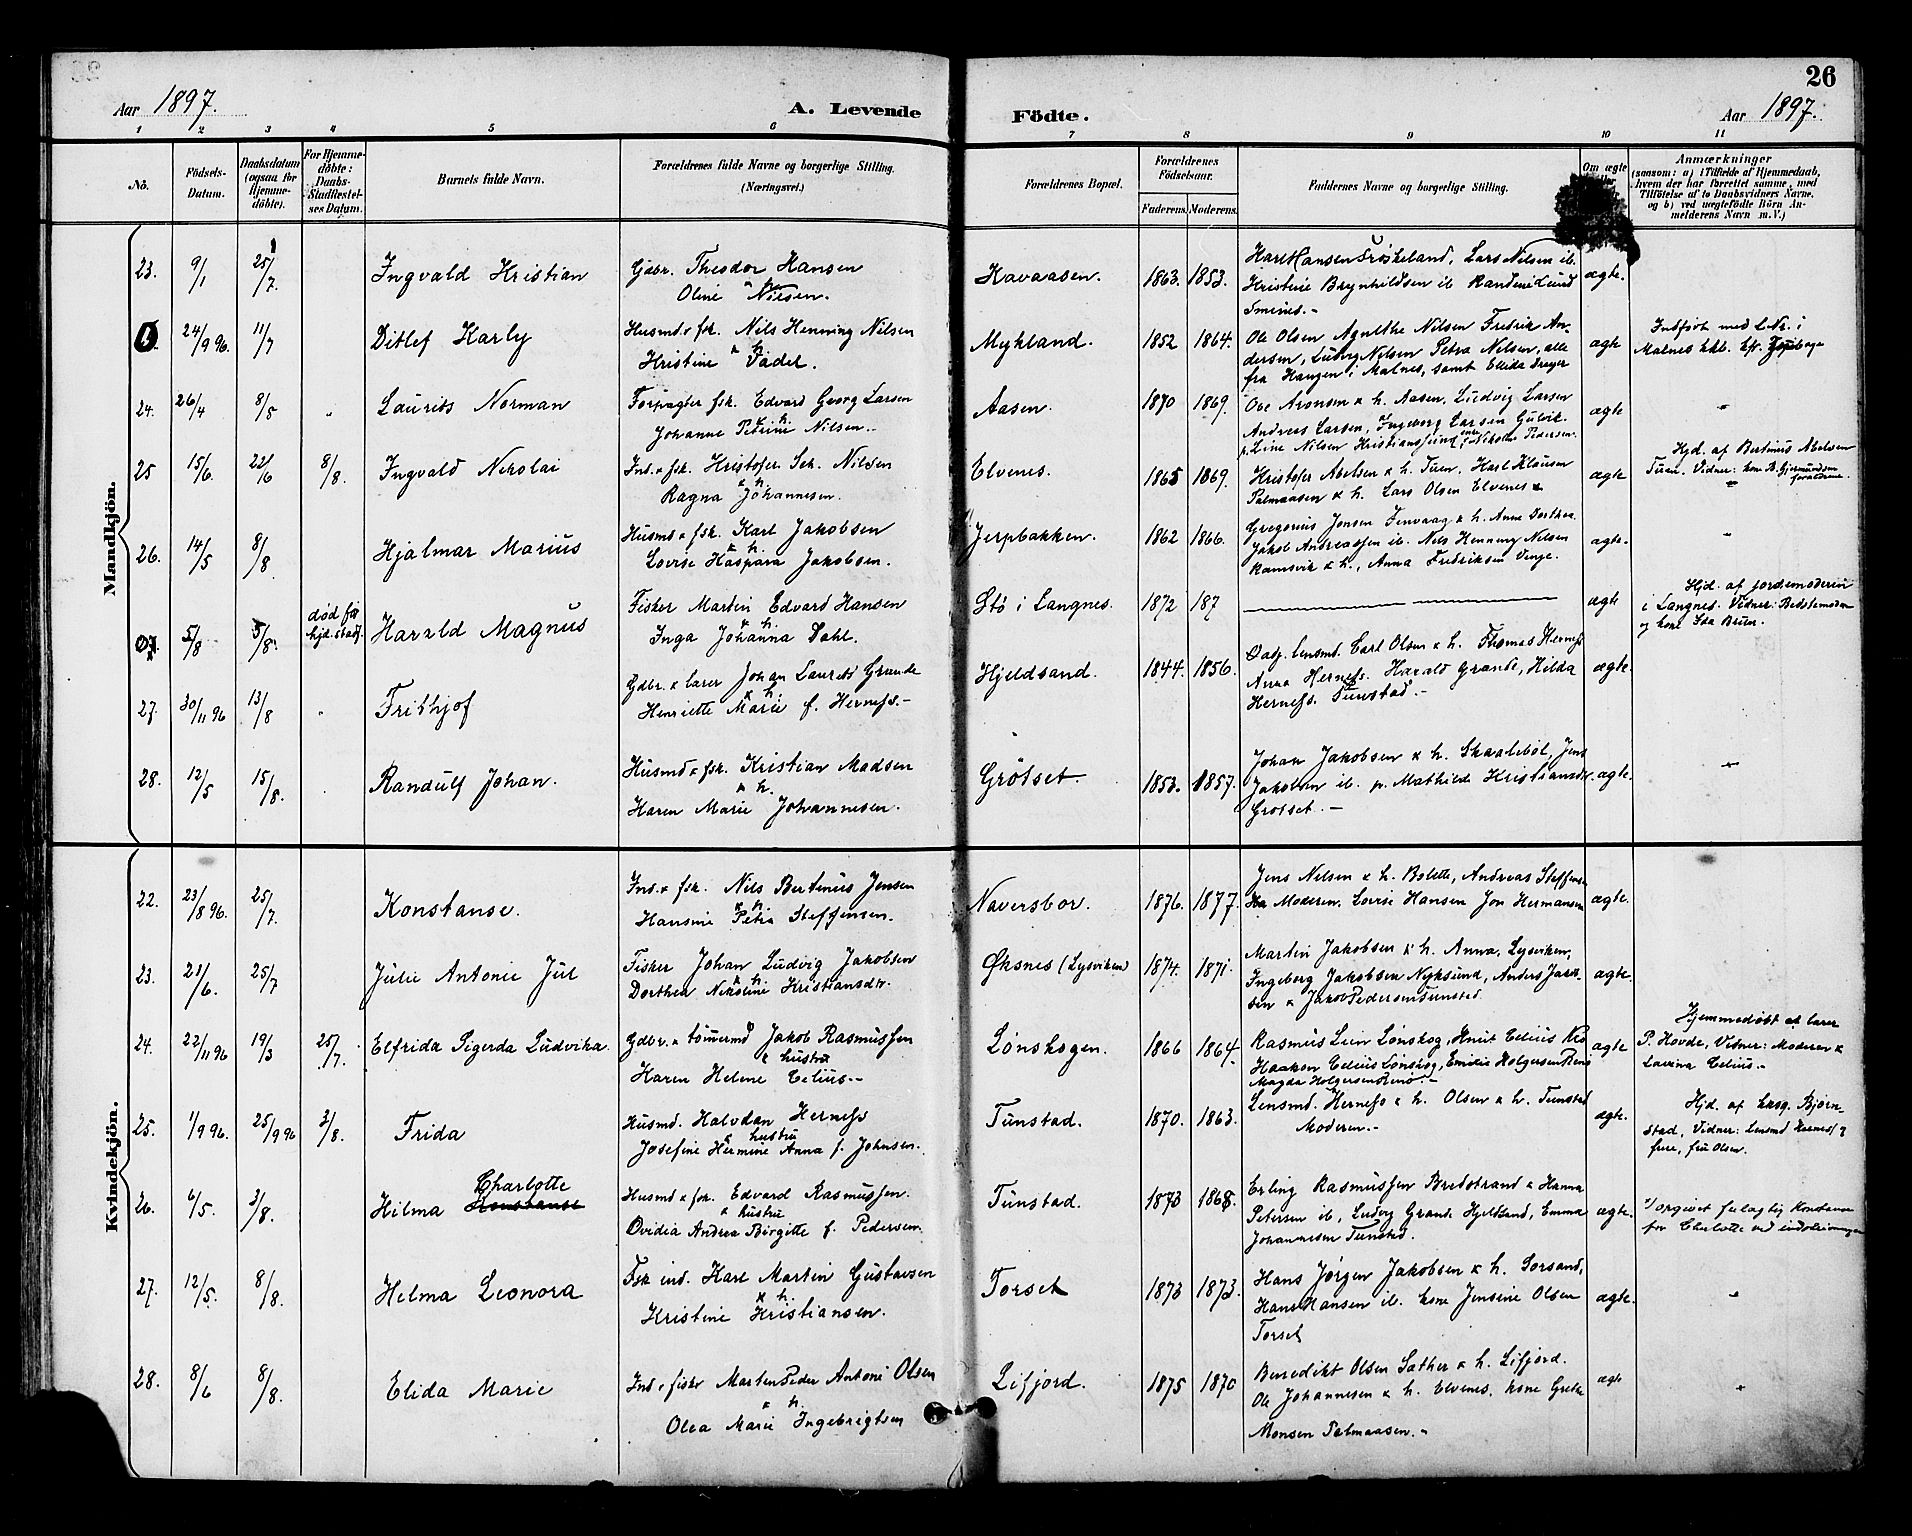 26
Aar 1897.
A. Levende
Födte.
Aar 1897.
1 2 3 4 5 6 7 8 9 10 11
No.
Födsels-
Datum.
Daabsdatum
(ogsaa for
Hjemme-
döbte).
For Hjemme-
döbte:
Daabs-
Stadfæstel-
ses Datum.
Barnets fulde Navn.
Forældrenes fulde Navne og borgerlige Stilling.
(Næringsvei.)
Forældrenes Bopæl.
Forældrenes
Födselsaar.
Faderens. Moderens.
Faddernes Navne og borgerlige Stilling.
Om ægte
Anmærkninger
(saasom: a) i Tilfælde af Hjemmedaab,
hvem der har forrettet samme, med
Tilföielse af to Daabsvidners Navne,
og b) ved uægtefödte Börn An-
melderens Navn m. V.)
Mandkjön.
23. 9/1 25/7. Ingvald Kristian
Gdbr. Theodor Hansen
Oline Nilsen.
Kavaasen. 1863. 1853.
Karl Hansen Frøskeland, Lars Nilsen ib.
Kristine Brynhildsen ib Randine Lund
Smines.-
ægte.
24/9 96. 11/7 Ditlef Karly
Husmd. & fsk. Nils Henning Nilsen
& h.
Kristine Fader.
Mykland. 1852 1864.
Ole Olsen Agnethe Nilsen Fredrik An-
dersen, Ludvig Nilsen Petra Nilsen, alle
fra Haugen i Malnes, samt Ellida Dreyer
ægte
Indført med L.Nr. i
Malnes kkb.
24. 26/4 8/8 " Laurits Norman
Forpagter fsk. Edvard Georg Larsen
& h.
Johanne Petrine Nilsen.
Aasen. 1870 1869.
Ole Aronsen & h. Aasen, Ludvig Larsen
Andreas Larsen, Ingeborg Larsen Gulvik.
p. Line Nilsen Nikoline Pedersen.
ægte
"
25 15/6. 22/6 8/8. Ingvald Nikolai
Ind. & fsk. Kristofer Sch. Nilsen
& h.
Ragna Johannesen.
Elvenes. 1865 1869.
Kristofer Abelsen & h. Tuen, Karl Klausen
Palmaasen & h. Lars Olsen Elvenes
ægte
Hjd. af Bertinus Abelsen
Tuen. Vidner: kone B. Gjermundsen
forældrene.
26. 14/5 8/8. Hjalmar Marius
Husmd & fsk. Karl Jakobsen
& h.
Lovise Kaspara Jakobsen.
Jerpbakken. 1862 1866.
Gregorius Jonsen Finvaag & h. Anne Dorthea
Jakob Andreassen ib. Nils Henning Nilsen
Ramsvik & h., Anna Fredriksen Vinge.
ægte.
"
5/8 5/8. død før
hjd. stadf.
Harald Magnus
Fisker Martin Edvard Hansen
& h.
Inga Johanna Dahl.
Stø i Langnes. 1872 187
ægte
Hjd. af jordemoderen
i Langnes. Vidner: Bedstemoder
og kone Ida Bruun.
27. 30/11 96 13/8 Frithjof
Gdbr. & lærer Johan Laurits Grande
& h.
Henriette Marie f. Herness.-
Hjeldsand. 1844. 1856.
Daaj. lensmd. Carl Olsen & h. Thomas Herness
Anna Herness. Harald Grande, Hilda
Herness. Tunstad.-
ægte.
28. 12/5 15/8. Randulf Johan.
Husmd & fsk. Kristian Madsen
& h.
Karen Marie Johannesen.
Grøtset. 1853. 1857.
Johan Jakobsen & h. Skaaleböl, Jens
Jakobsen ib. p. Mathilde Kristiansdt.
Grøtset.-
ægte.
"
Kvindekjön.
22. 23/8 96. 25/7. Konstanse.
Ind. & fsk. Nils Bertinus Jensen
& h.
Hansine Petra Steffensen.
Naversbor. 1876. 1877.
Jens Nilsen & h. Bolette, Andreas Steffen-
Moderen, Lovise Hansen Jon Hermansen
ægte.
23. 21/6. 25/7 Julie Antonie Jul
Fisker Johan Ludvig Jakobsen
& h.
Dorthea Nikoline Kristiansdtr.
Øksnes (Lysviken) 1874. 1871.
Martin Jakobsen & h. Anna, Lysviken,
Ingeborg Jakobsen Nyksund, Anders Jakob-
sen & Jakob Pedersen Tunstad.
ægte.
24. 22/11 96 19/3 25/7. Elfrida Sigerda Ludvika.
Gdbr. & tømmermd Jakob Rasmussen
& hustru
Karen Helene Celius.-
Lønskogen. 1866 1864.
Rasmus Lien Lønskog, Knut Celius Rø
Haakon Celius Lønskog, Emilie Holgersen Renø
Magda Holgersen Renø.-
ægte
Hjemmedøbt af lærer
P. Hovde, Vidner: Moderen &
Lavina Celius.-
25. 1/9 96. 25/9 96 3/8. Frida
Husmd. Halvdan Herness
& hustru
Josefine Hermine Anna f. Johnsen.
Tunstad. 1870. 1863.
Lensmd. Herness & h. Olsen & h. Tunstad
Moderen.-
ægte.
Hjd. af kasg. Bjørn-
stad, Vidner: Lensmd Herness og
frue, fru Olsen.
26. 6/5. 3/8. Charlotte
Hilma Konstanse
Husmd & fsk. Edvard Rasmussen.
& hustru
Ovidia Andrea Birgitte f. Pedersen.
Tunstad. 1873 1868.
Erling Rasmussen Bredstrand & Hanna
Petersen ib, Ludvig Grande Hjeldsand, Emma
Johannesen Tunstad.
ægte.
x/ opgivet feilagtig Konstanse
for Charlotte ved indskrivningen
27. 12/5. 8/8. Helma Leonora
Fsk ind. Karl Martin Gustavsen
& h.
Kristine Kristiansen.
Torset 1873 1873.
Hans Jørgen Jakobsen & h. Sorsand,
Hans Hansen ib. kone Jensine Olsen
Torset
ægte.
"
28. 8/6 8/8. Elida Marie
Ind & fisker Marten Peder Antoni Olsen
& h.
Olea Marie Ingebrigtsen
Lifjord. 1875 1870
Benedikt Olsen Sæther & h. Lifjord.
Ole Johannesen & h. Elvenes, kone Grete
Monsen Palmaasen.-
ægte
"